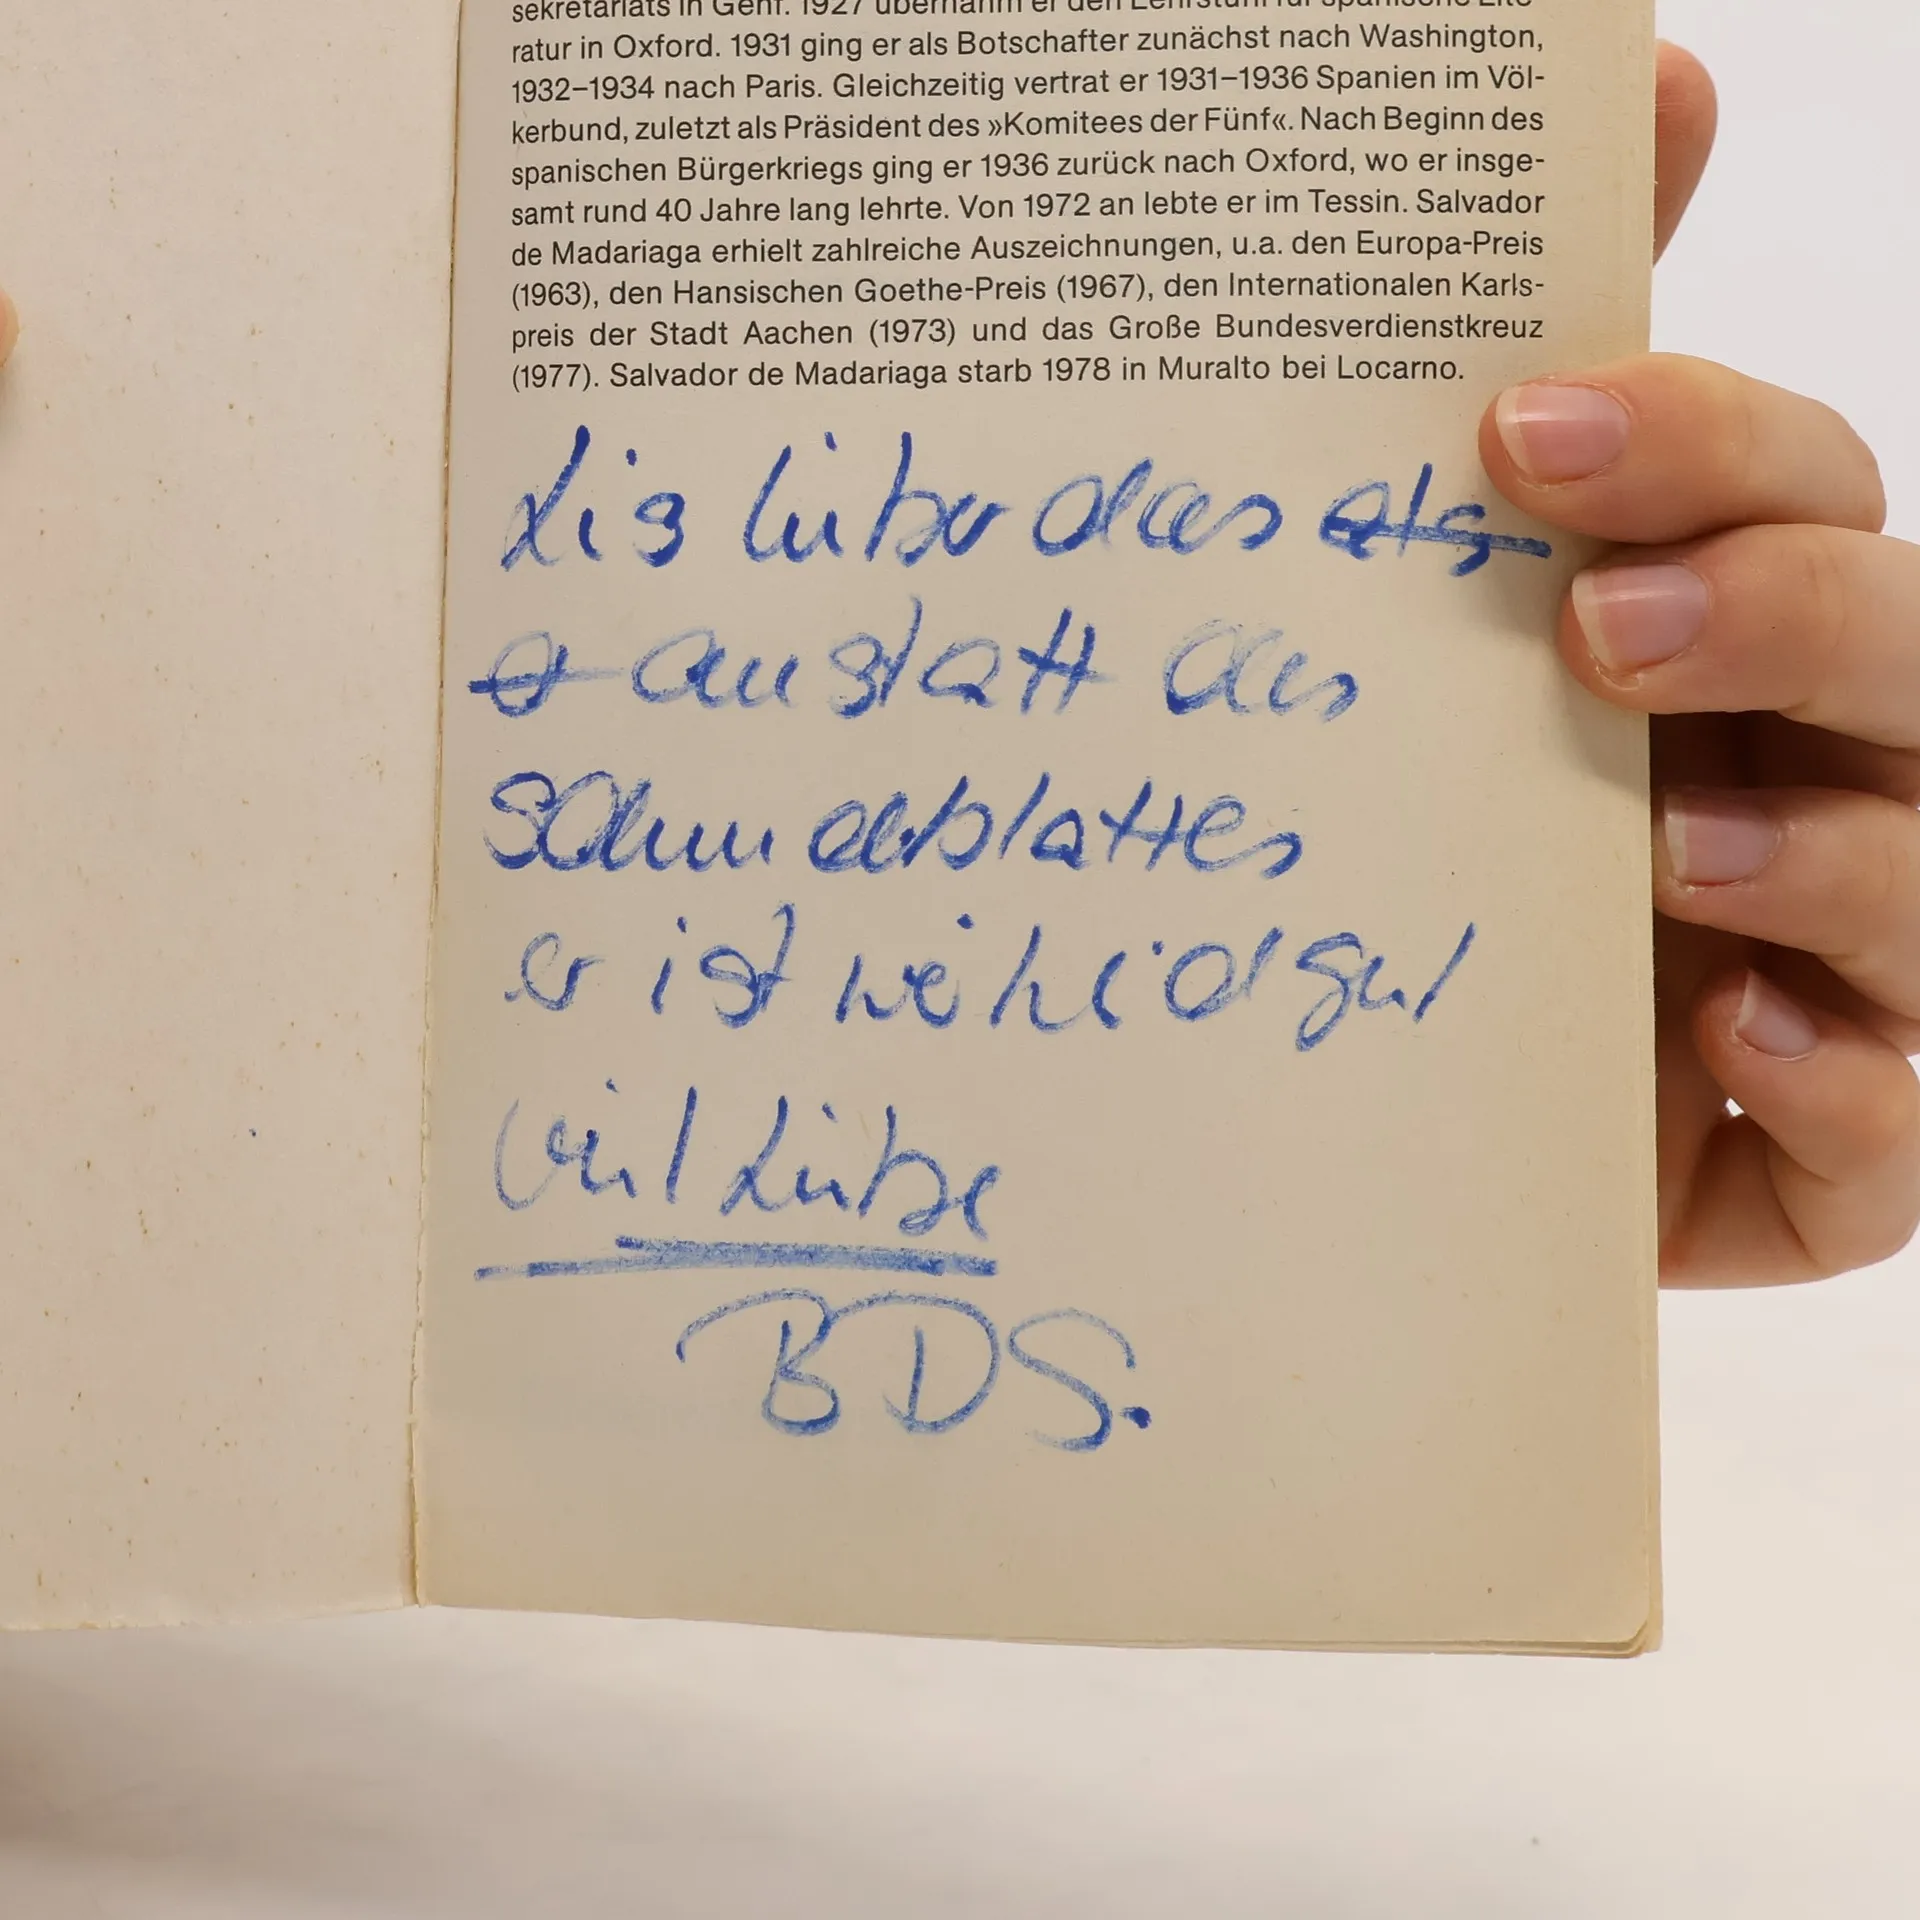 sekretariats in Genf. 1927 übernahm er den Lehrstuhl für spanische Lite-
ratur in Oxford. 1931 ging er als Botschafter zunächst nach Washington,
1932–1934 nach Paris. Gleichzeitig vertrat er 1931–1936 Spanien im Völ-
kerbund, zuletzt als Präsident des »Komitees der Fünf«. Nach Beginn des
spanischen Bürgerkriegs ging er 1936 zurück nach Oxford, wo er insge-
samt rund 40 Jahre lang lehrte. Von 1972 an lebte er im Tessin. Salvador
de Madariaga erhielt zahlreiche Auszeichnungen, u.a. den Europa-Preis
(1963), den Hansischen Goethe-Preis (1967), den Internationalen Karls-
preis der Stadt Aachen (1973) und das Große Bundesverdienstkreuz
(1977). Salvador de Madariaga starb 1978 in Muralto bei Locarno.
Lis lieber das als
a anstatt des
Schmierblattes
er ist wirklich gut
viel Liebe
BDS.